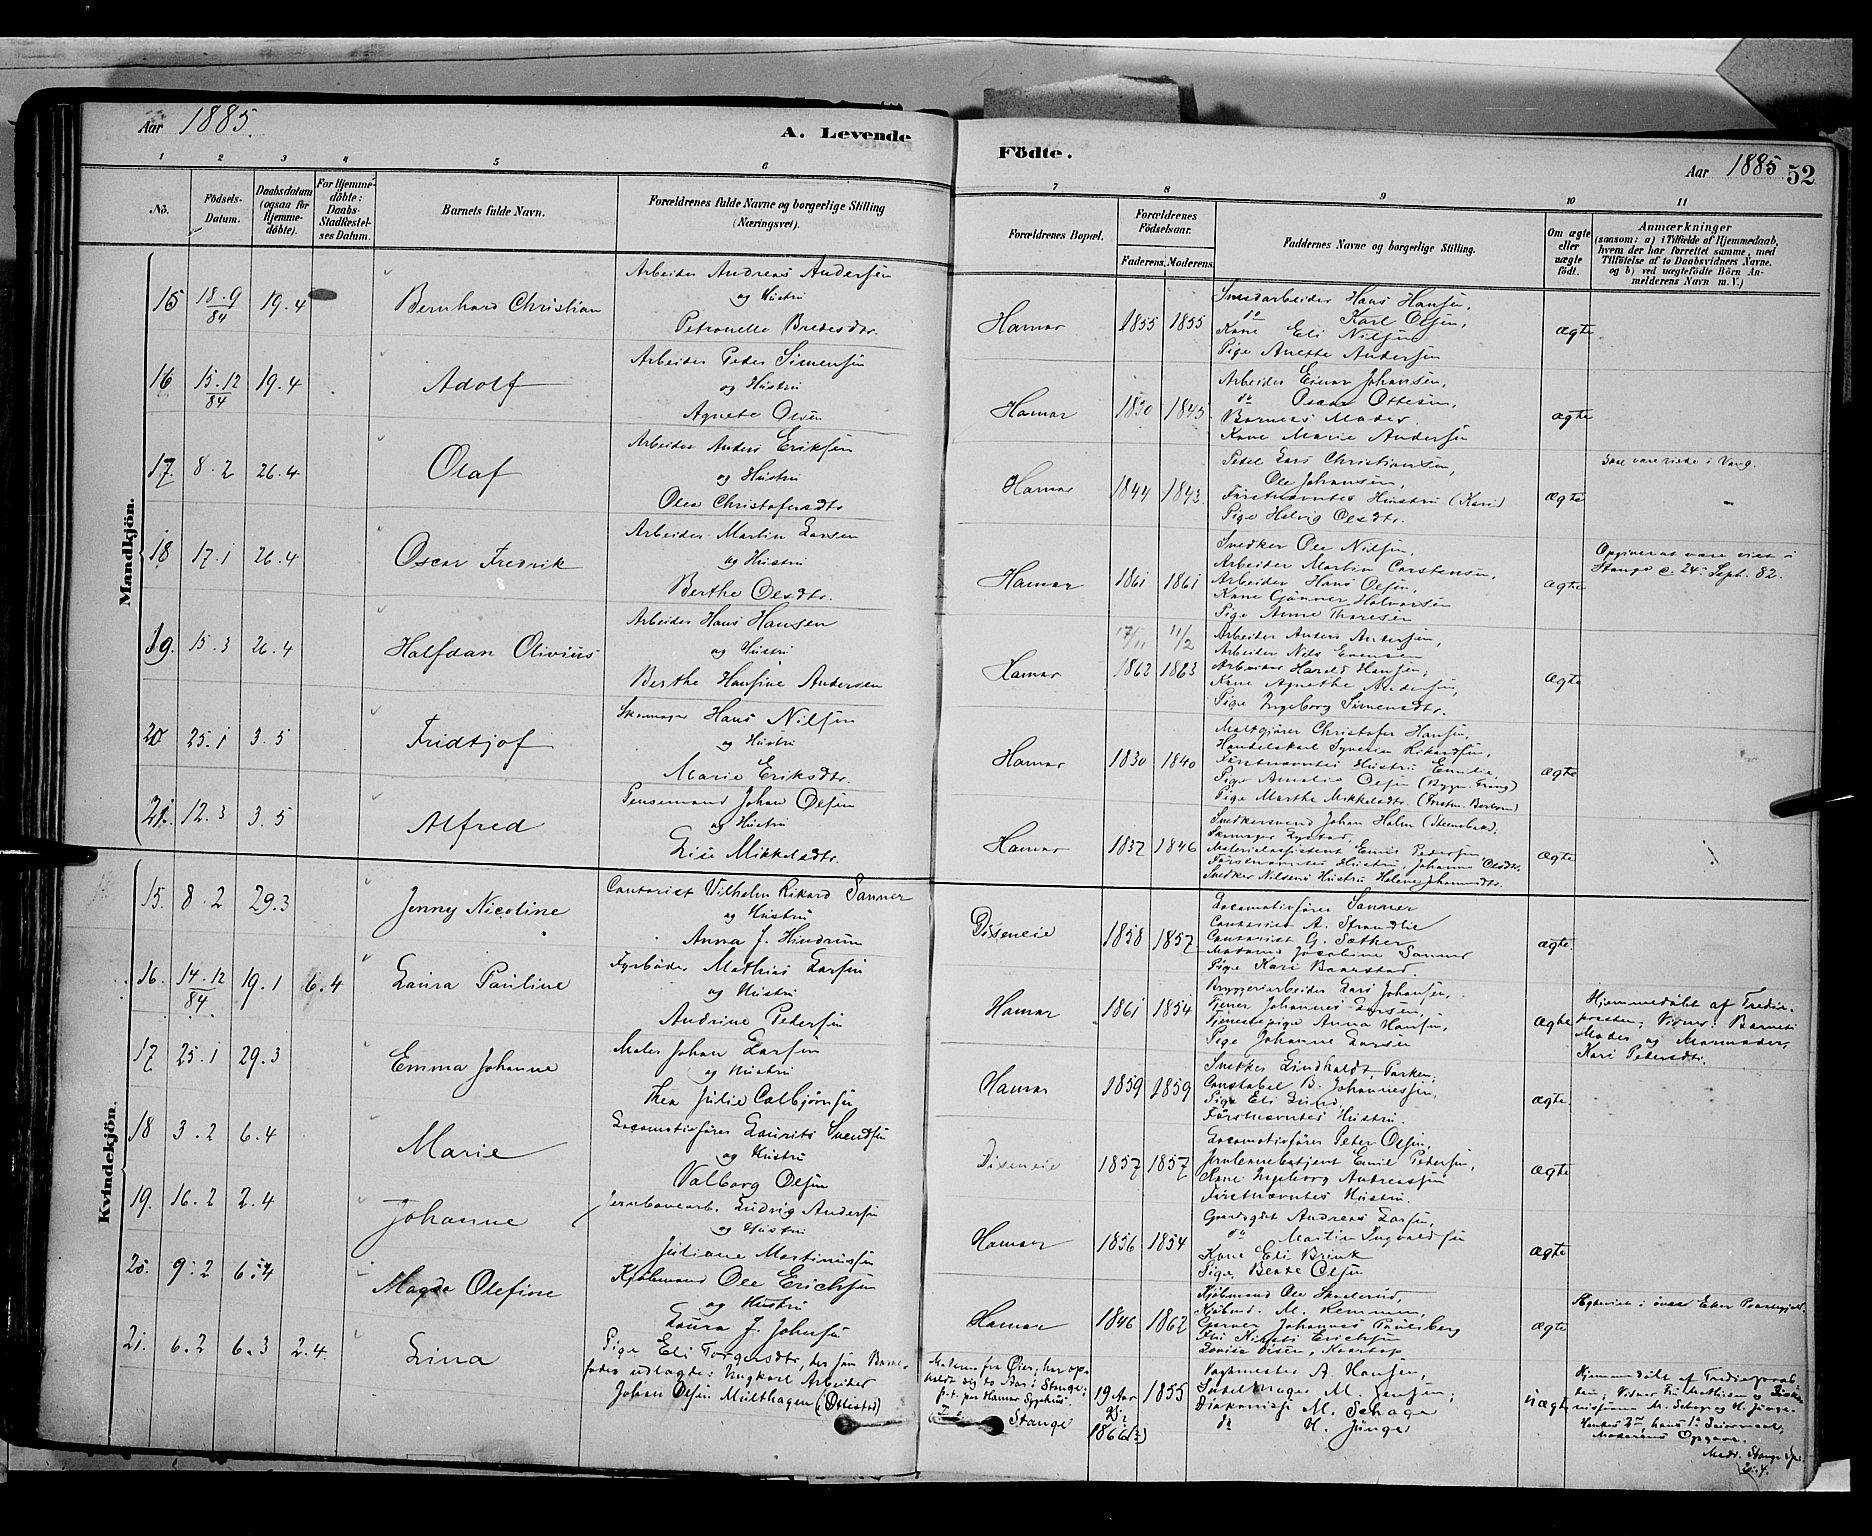 Aar 1885.
A. Levende
Födte.
Aar 1885
52
1 2 3 4 5 6 7 8 9 10 11
No.
Födsels-
Datum.
Daabsdatum
(ogsaa for
Hjemme-
döbte).
For Hjemme-
döbte:
Daabs-
Stadfæstel-
ses Datum.
Barnets fulde Navn.
Forældrenes fulde Navne og borgerlige Stilling
(Næringsvei).
Forældrenes Bopæl.
Forældrenes
Födselsaar.
Faderens. Moderens.
Faddernes Navne og borgerlige Stilling.
Om ægte
eller
uægte
födt.
Anmærkninger
(saasom: a) i Tilfælde af Hjemmedaab,
hvem der har forrettet samme, med
Tilföielse af to Daabsvidners Navne.
og b) ved uægtefödte Börn An-
melderens Navn m. V.)
Mandkjön.
15 18.9/84 19.4 Bernhard Christian
Arbeider Andreas Andersen
og Hustru
Petronelle Bredesdtr.
Hamar 1855 1855
Smedarbeider Hans Hansen,
do Karl Olsen,
Kone Eli Nilsen
Pige Anette Andersen
ægte
16 15.12/84 19.4 Adolf
Arbeider Peder Simensen
og Hustru
Agnete Olsen
Hamar 1830 1845
Arbeider Einar Johansen,
do Oscar Ottesen,
Barnets Moder.
Kone Marie Andersen
ægte
17. 8.2 26.4 Olaf
Arbeider Anders Eriksen
og Hustru
Olea Christofersdtr
Hamar 1844 1843.
Lars Christiansen,
Ole Johansen,
Förstnævntes Hustru (Kari)
Pige Helvig Olsdtr.
ægte
være viede i Vang.
18 17.1 26.4 Oscar Fredrik
Arbeider Martin Larsen
og Hustru
Berthe Olsdtr.
Hamar 1861 1861
Snedker Ole Nilsen,
Arbeider Martin Carstensen,
Arbeider Hans Olsen,
Kone Gjønner Halvorsen
Pige Anne Thoresen
ægte
Opgiver at være viet i
Stange c. 24. Sept. 82.
19. 15.3 26.4 Halfdan Olivius
Arbeider Hans Hansen
og Hustru
Berthe Hansine Andersen
Hamar 17/11 1862 11/2 1863
Arbeider Anders Andersen,
Arbeider Nils Evensen
Arbeider Harald Hansen,
Kone Agnethe Andersen,
Pige Ingeborg Simensdtr.
ægte
20 25.1 3.5 Fridtjof
Skomager Hans Nilsen
og Hustru
Marie Eriksdtr.
Hamar 1830 1840
Maltgjører Christofer Hansen,
Handelskarl Syverin Rikardsen,
Förstnævntes Hustru Emilie,
Pige Amalie Olsen
Pige Marthe Mikkelsdtr.
ægte
21. 12.3 3.5 Alfred
Pensemand Johan Olsen
og Hustru
Lise Mikkelsdtr.
Hamar 1837 1846
Snedkersvend Johan Holm
Skomager
Materialassistent Emil Pedersen,
Förstnævntes Hustru, Johanne Olsdtr,
Snedker Nilsens Hustru Helene Johannesdtr.
ægte
Kvindekjön.
15. 8.2 29.3 Jenny Nicoline
Contorist Vilhelm Rikard Sanner
og Hustru
Anna J. Hindrum
Diseneie 1858 1857
Locomotivfører Sanner
Contorist A. Strandlie
Contorist G. Sæther
Madame Jacobine Sanner
Pige Kari Baarstad.
ægte
16. 14.12/84 19.1 6.4 Laura Pauline
Fyrbøder Mathias Larsen
og Hustru
Andrine Pedersen
Hamar 1861 1854
Bryggeriarbeider Lars Johansen,
Tjener Johannes Larsen,
Tjenestepige Anna Hansen,
Pige Johanne Larsen
ægte
Hjemmedøbt af Fredie-
præsten; Vidner: Barnets
Moder og Mormoder,
Kari Pedersdtr.
17 25.1 29.3 Emma Johanne
Maler Johan Larsen
og Hustru
Thea Julie Calbjørnsen
Hamar 1859 1859
Snekker Lindholdt, Parken;
Constabel B. Johannessen,
Pige Eli Lund,
Förstnævntes Hustru.
ægte
18 3.2 6.4 Marie
Locomotivfører Laurits Svendsen
og Hustru
Valborg Olsen
Diseneie 1857 1857
Locomotivfører Peter Olsen,
Jernbanebetjent Emil Petersen,
Kone Ingeborg Andreassen
Förstnævntes Hustru.
ægte
19. 16.2 2.4 Johanne
Jernbanearb. Ludvig Andersen
og Hustru
Juliane Martinussen
Hamar 1856 1854
Gaardsgut Andreas Larsen,
do Martin Ingvaldsen
Kone Eli Brink
Pige Beate Olsen
ægte
20. 9.2 6.4 Magda Olefine
Kjøbmand Ole Erichsen
og Hustru
Laura J. Johnsen
Hamar 1846 1862
Kjøbmand Ole Skaderud,
Kjøbmd. M. Hemmen,
Garver Johannes Paulsberg
Erichsen
Lovise Olsen,
ægte
Ægteviet i Præstegjeld.
21. 6.2 6.3 2.4 Lina
Pige Eli Torgersdtr, der som Barne-
fader udlagte: Ungkarl Arbeider
Johan Olsen Mülthagen (Ottestad)
Moderen fra Øier, har op-
holdt sig to Aar i Stange;
p. t. paa Hamar Sygehus.
Stange
19 Aar
1866 (?) 1855
Vagtmester A Hansen,
Sadelmager M. Jensen;
Diakonisse M. Schage
do H. Junge
uægte
Hjemmedøbt af
Vidner
M. Schage og H. Junge
Hendes 2det, hans 1ste Leiermaal,
Moderens Opgave.
Medt. Stange
2.4.